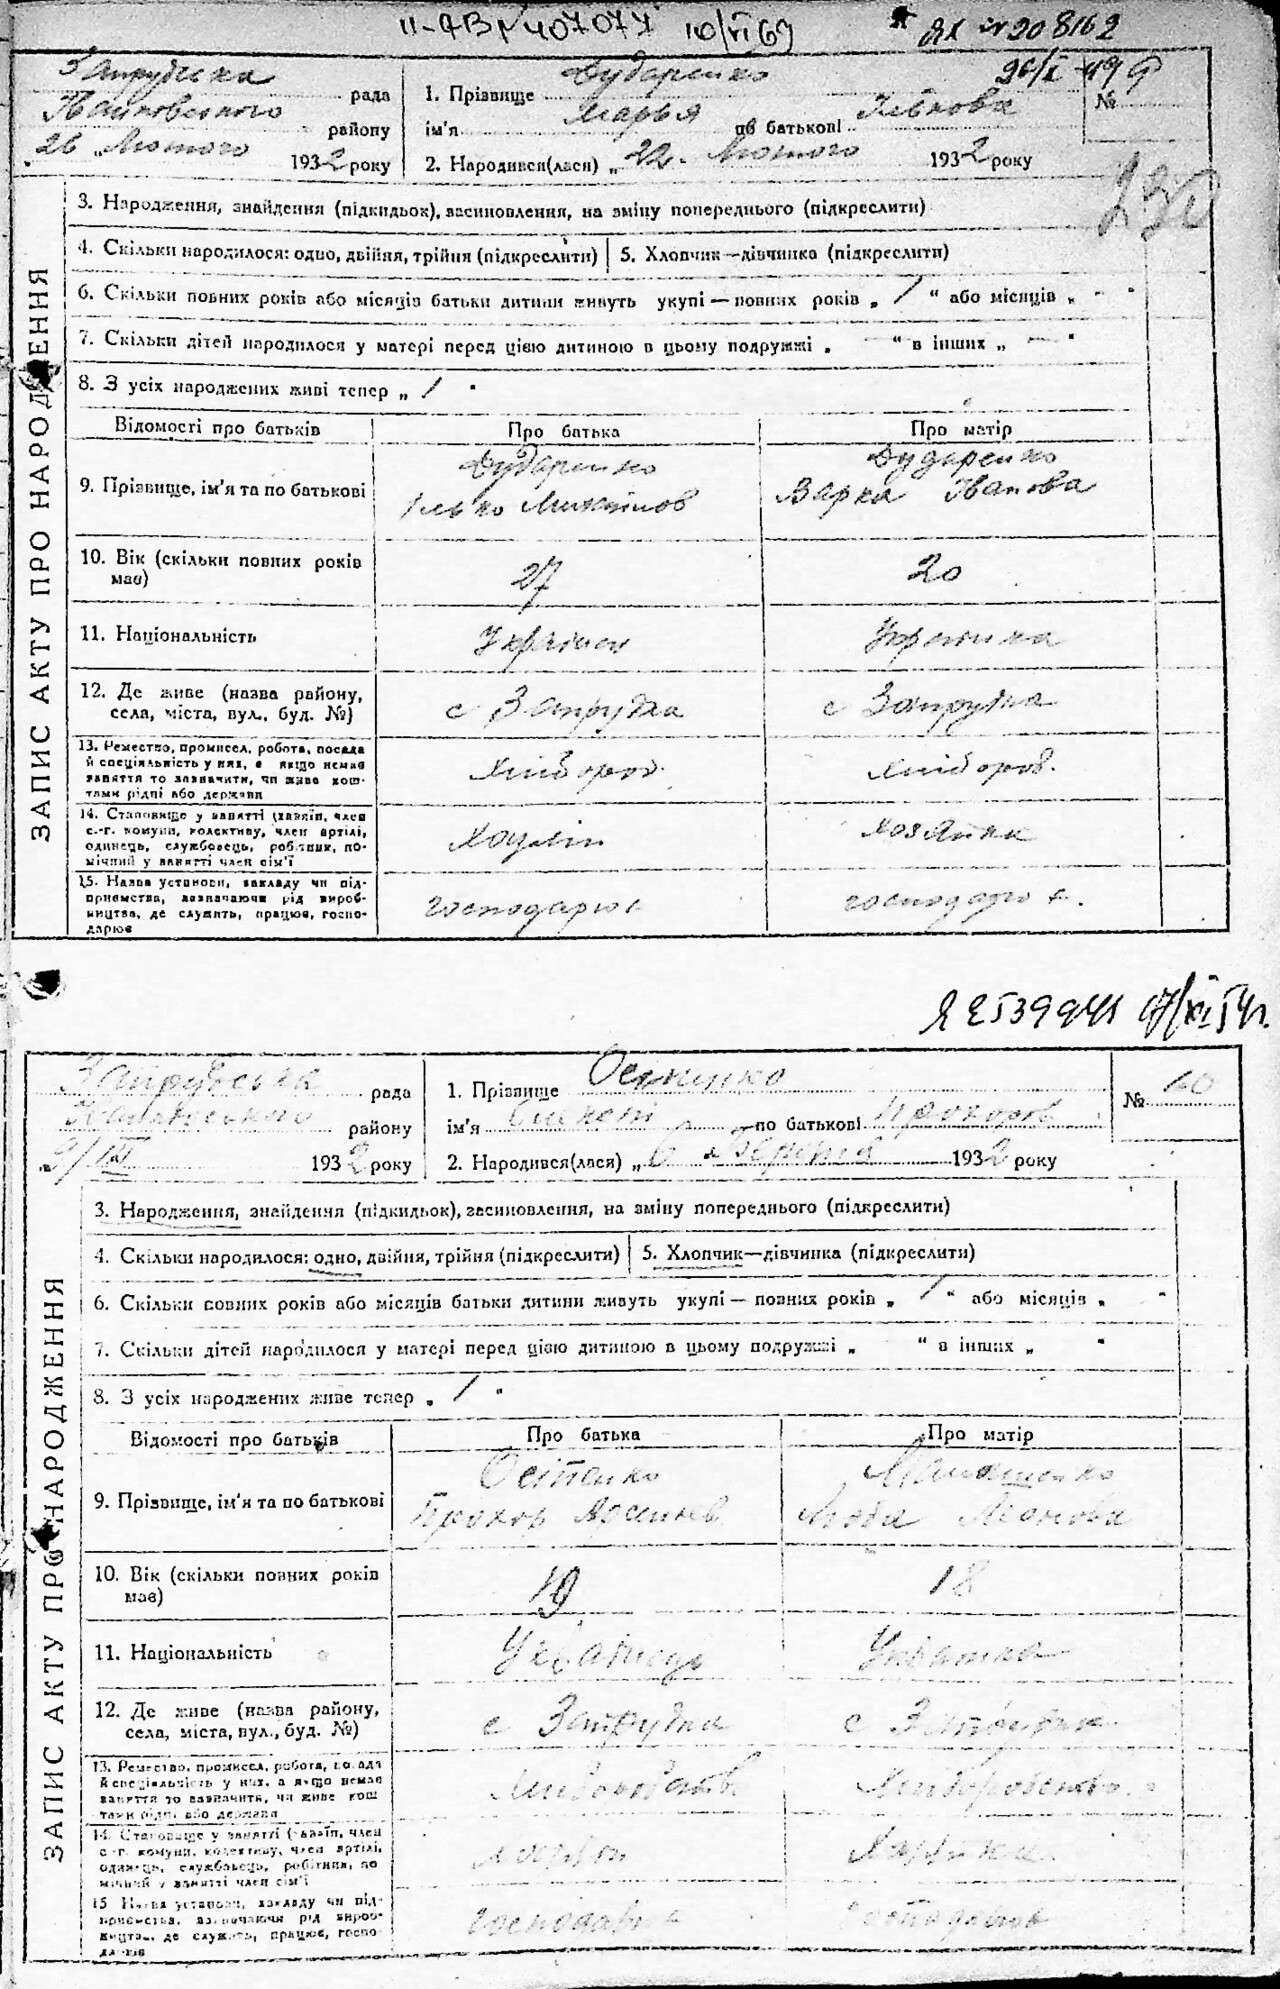 II-АВ № 407077 10/VI 69
Запрудська рада
району
26 Лютого 1932 року
1. Прізвище Дударенко
ім'я Марья по батькові Ількова
2. Народився(лася) „ 22. Лютого 1932 року
№ 9
230
ЗАПИС АКТУ ПРО НАРОДЖЕННЯ
3. Народження, знайдення (підкидьок), засиновлення, на зміну попереднього (підкреслити)
4. Скільки народилося: одно, двійня, трійня (підкреслити) 5. Хлопчик—дівчинка (підкреслити)
6. Скільки повних років або місяців батьки дитини живуть укупі — повних років „ 1 “ або місяців „ - "
7. Скільки дітей народилося у матері перед цією дитиною в цьому подружжі „ — “ в інших „ — "
8. З усіх народжених живі тепер „ 1 "
Відомості про батьків Про батька Про матір
9. Прізвище, ім'я та по батькові
Дударенко
Ілько Михайлов
Дударенко
Варка Іванова
10. Вік (скільки повних років має) 27 20
11. Національність Українец Українка
12. Де живе (назва району, села, міста, вул., буд. №) с Запрудка с Запрудка
13. Ремество, промисел, робота, посада й спеціальність у них, а якщо немає заняття то зазначити, чи живе коштами рідні або держави Хлібороб. Хлібороб.
14. Становище у занятті (хазяїн, член с.-г. комуни, колективу, член артілі, одинець, службовець, робітник, помічний у занятті член сім'ї хозяйка
15. Назва установи, закладу чи підприємства, зазначаючи рід виробництва, де служить, працює, господарює
17/XI 54 г.
Запрудська рада
району
1932 року
1. Прізвище Осипенко
ім'я Олексій по батькові Прохоров
2. Народився(лася) „ 6 " Березня 1932 року
№ 10
ЗАПИС АКТУ ПРО НАРОДЖЕННЯ
3. Народження, знайдення (підкидьок), засиновлення, на зміну попереднього (підкреслити)
4. Скільки народилося: одно, двійня, трійня (підкреслити) 5. Хлопчик—дівчинка (підкреслити)
6. Скільки повних років або місяців батьки дитини живуть укупі — повних років „ 1 “ або місяців „ "
7. Скільки дітей народилося у матері перед цією дитиною в цьому подружжі „ “ в інших „ "
8. З усіх народжених живе тепер „ 1 "
Відомості про батьків Про батька Про матір
9. Прізвище, ім'я та по батькові
Осіпенко
Прохор
10. Вік (скільки повних років має) 19 18
11. Національність Українець Українка
12. Де живе (назва району, села, міста, вул., буд. №) с Запрудка с Запрудка
13. Ремество, промисел, робота, посада й спеціальність у них, а якщо немає заняття то зазначити, чи живе коштами рідні або держави Хлиборобств. Хлиборобство.
14. Становище у занятті (хазяїн, член с.-г. комуни, колективу, член артілі, одинець, службовець, робітник, помічний у занятті член сім'ї
15 Назва установи, закладу чи підприємства, зазначаючи рід виробництва, де служить, працює, господарює